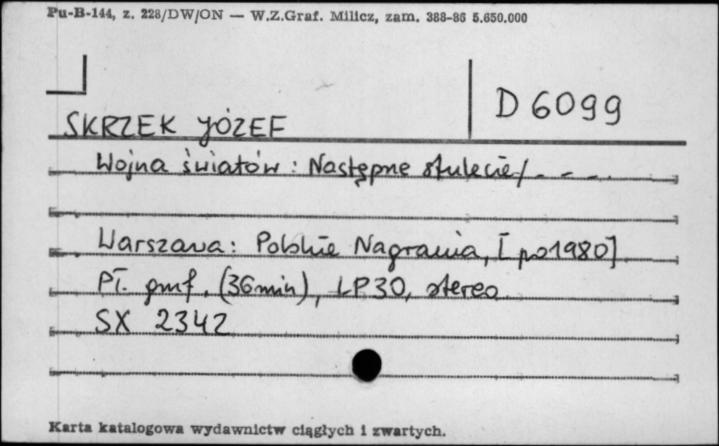 Pu-B-144, z. 228/DW/ON — W.Z.Graf. Milicz, zam. 388-86 5.650.000
D 6099
SKRZEK JÓZEF
Wojna światów : Następne stulecie / . - - . .
Warszawa : Polskie Nagrania, [po 1980]
Pł. gmf. (36 min), LP 30, stereo
SX 2342
Karta katalogowa wydawnictw ciągłych i zwartych.